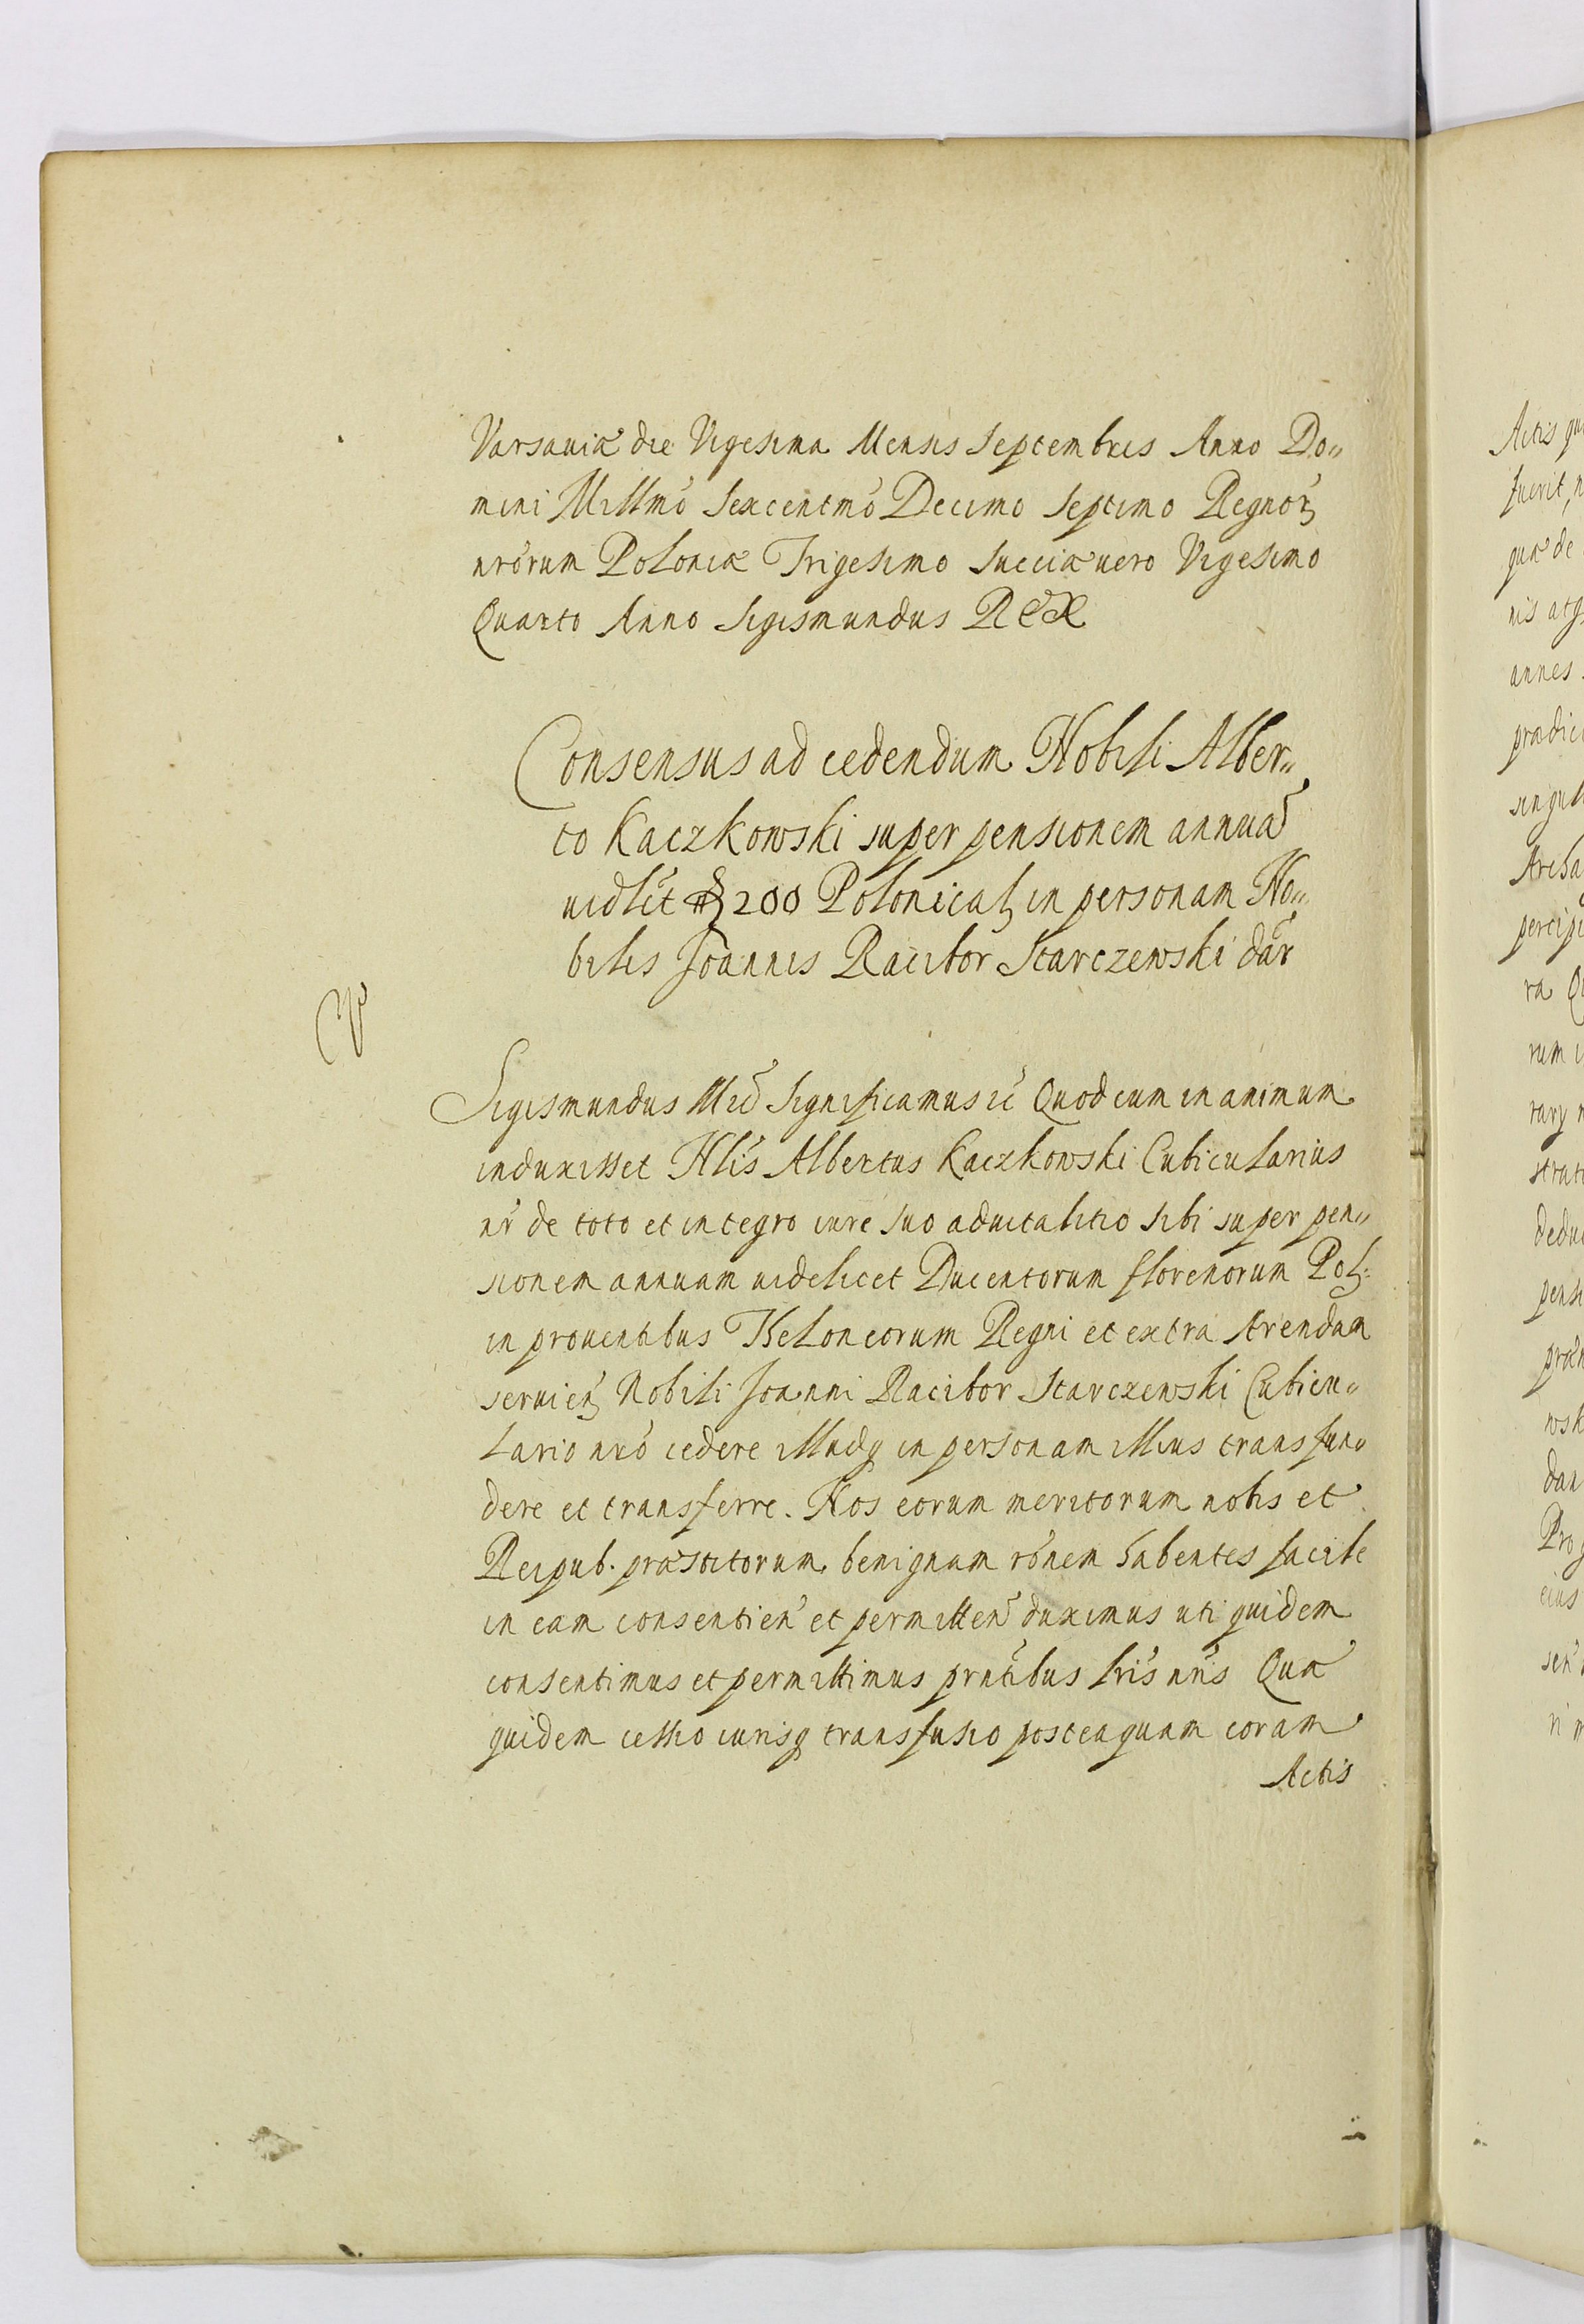 Varsauiæ die Vigesima Mensis Septembris Anno Do„
mini Millmo Sexcentmo Decimo Septimo Regnoꝝ
nrorum Poloniæ Trigesimo Sueciæ uero Vigesimo
Quarto Anno Sigismundus Rex
Consensus ad cedendum Nobili Alber„
to Kaczkowski super pensionem annuã
uidlit 200 Polonical in personam No„
bilis Joannis Racibor Starczewski dãr
Sigismundus significamus Quod cum in animum
induxisset Nlis Albertus Kaczkowski Cubicularius
nr de toto et integro iure suo aduitalitio sibi super pen„
sionem annuam uidelicet Ducentorum florenorum Pol:
in prouentibus Theloneorum Regni et extra Arendam
seruien Nobili Joanni Racibor Starczewski Cubicu„
lario nro cedere illudq in personam illius transfun„
dere et transferre. Nos eorum meritorum nobis et
Reipub. præstitorum benignam ronem habentes facile
in eam consentien et permitten duximus uti quidem
consentimus et permittimus prntibus lris nris Quæ
quidem cessio iurisq transfusio posteaquam coram
Actis
Actis
fuerit
quæ de
nis atq
annes
percip
ra
rum
dedu
wsk
dan
Pro
eius